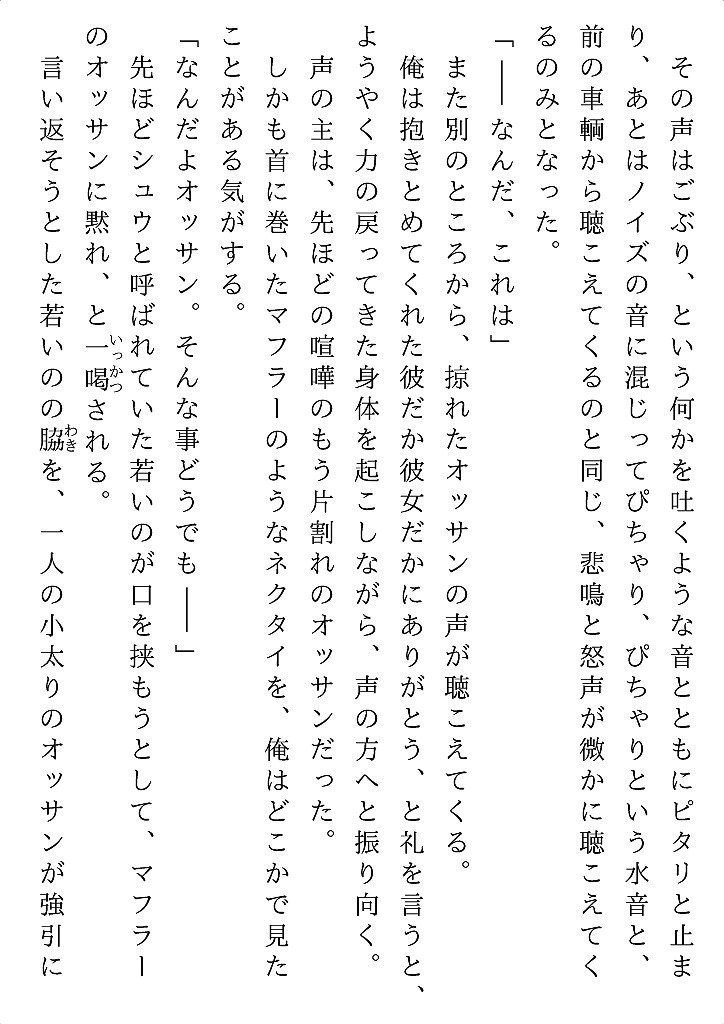 その声はごぶり、という何かを吐くような音とともにピタリと止ま
り、あとはノイズの音に混じってぴちゃり、ぴちゃりという水音と、
前の車輌から聴こえてくるのと同じ、悲鳴と怒声が微かに聴こえてく
るのみとなった。
「――なんだ、これは」
　また別のところから、掠れたオッサンの声が聴こえてくる。
　俺は抱きとめてくれた彼だか彼女だかにありがとう、と礼を言うと、
ようやく力の戻ってきた身体を起こしながら、声の方へと振り向く。
　声の主は、先ほどの喧嘩のもう片割れのオッサンだった。
　しかも首に巻いたマフラーのようなネクタイを、俺はどこかで見た
ことがある気がする。
「なんだよオッサン。そんな事どうでも――」
　先ほどシュウと呼ばれていた若いのが口を挟もうとして、マフラー
のオッサンに黙れ、と一喝いっかつされる。
　言い返そうとした若いのの脇わきを、一人の小太りのオッサンが強引に